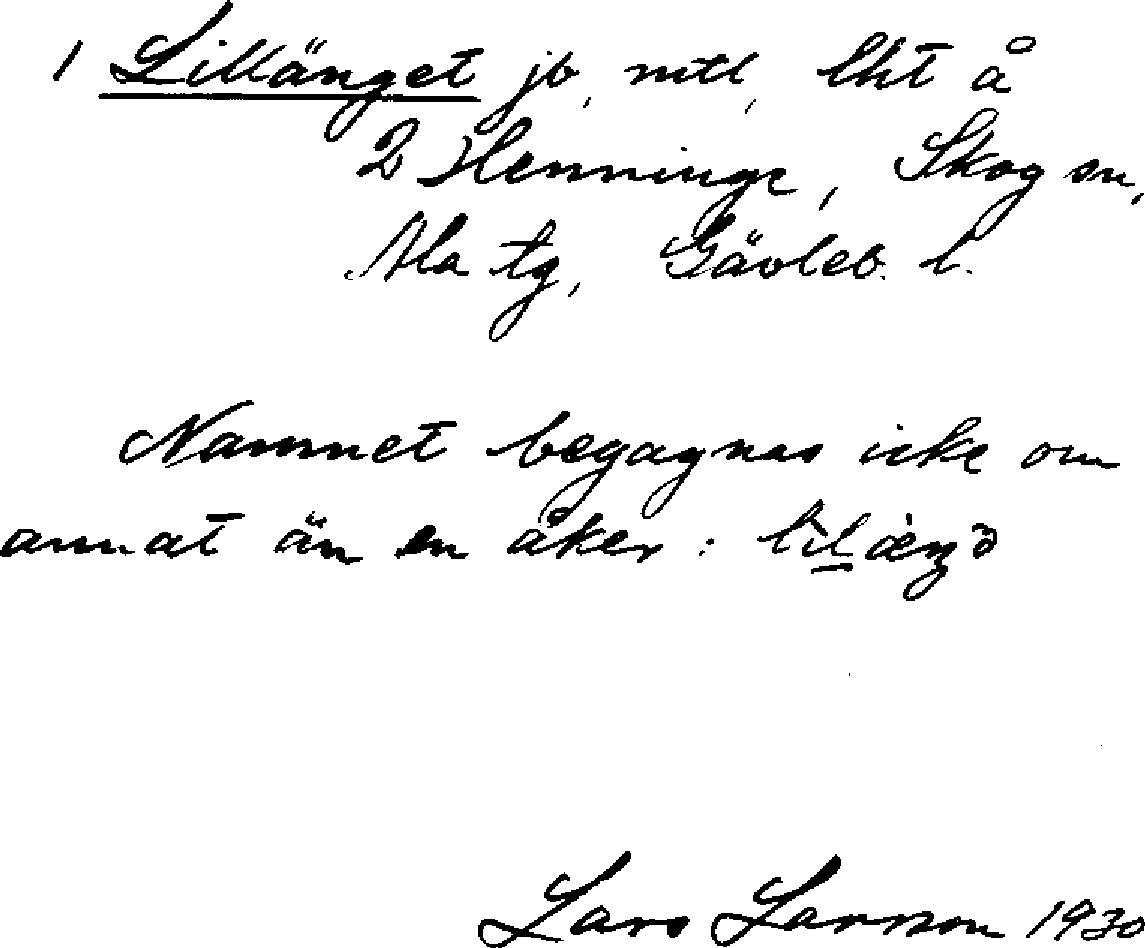 1 Lillänget jb, mtl, lht å
2 Henninge, Skog sn,
Ala tg, Gävleb. l.
Namnet begagnas icke om
annat än en åker :
Lars Larsson 1930